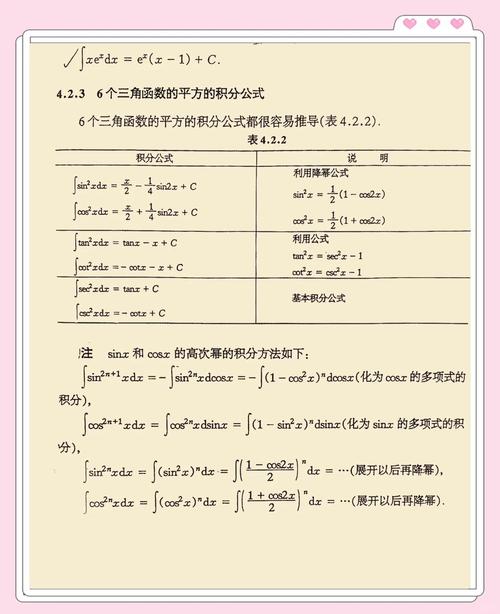 ∫xeˣdx = eˣ(x − 1) + C.
4.2.3 6个三角函数的平方的积分公式
6个三角函数的平方的积分公式都很容易推导(表4.2.2).
表4.2.2
积分公式 说 明
∫sin²xdx = x/2 − 1/4 sin2x + C
∫cos²xdx = x/2 + 1/4 sin2x + C
利用降幂公式
sin²x = 1/2(1 − cos2x)
cos²x = 1/2(1 + cos2x)
∫tan²xdx = tanx − x + C
∫cot²xdx = − cotx − x + C
利用公式
tan²x = sec²x − 1
cot²x = csc²x − 1
∫sec²xdx = tanx + C
∫csc²xdx = − cotx + C
基本积分公式
注 sinx 和 cosx 的高次幂的积分方法如下:
∫sin²ⁿ⁺¹xdx = − ∫sin²ⁿxdcosx = − ∫(1 − cos²x)ⁿdcosx(化为 cosx 的多项式的
积分),
∫cos²ⁿ⁺¹xdx = ∫cos²ⁿxdsinx = ∫(1 − sin²x)ⁿdsinx(化为 sinx 的多项式的积
分),
∫sin²ⁿxdx = ∫(sin²x)ⁿdx = ∫((1 − cos2x)/2)ⁿdx = …(展开以后再降幂),
∫cos²ⁿxdx = ∫(cos²x)ⁿdx = ∫((1 + cos2x)/2)ⁿdx = …(展开以后再降幂).